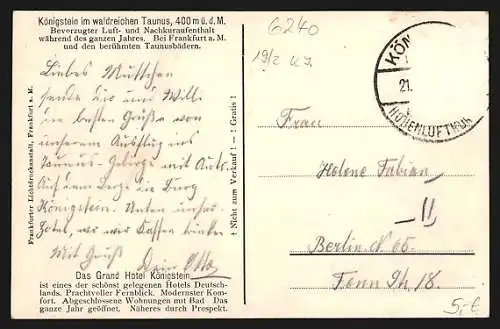 Königstein im waldreichen Taunus, 400 m ü. d. M.
Bevorzugter Luft- und Nachkuraufenthalt
während des ganzen Jahres. Bei Frankfurt a. M.
und den berühmten Taunusbädern.
6240
19/2 
KÖN
21.
HÖHENLUFTKUR
Liebes Muttchen
sende Dir und Willi
die besten Grüße von
unserem Ausflug ins
Taunus-Gebirge mit Auto.
Auf dem Berge die Burg
Königstein. Unten unser
Hotel, wo wir Kaffee trinken
Mit Gruß
Dein Otto
Frankfurter Lichtdruckanstalt, Frankfurt a. M.
† Nicht zum Verkauf! — † Gratis †
Frau
Helene Fabian
Berlin N. 65.
Tenn Str. 18.
5,-
Das Grand Hotel Königstein
ist eines der schönst gelegenen Hotels Deutsch-
lands. Prachtvoller Fernblick. Modernster Kom-
fort. Abgeschlossene Wohnungen mit Bad Das
ganze Jahr geöffnet. Näheres durch Prospekt.